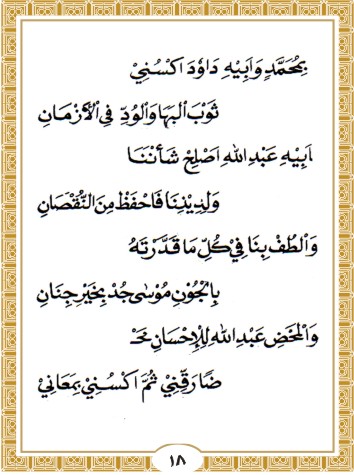 بِمُحَمَّدٍ وَاَبِيْهِ دَاوُدَ اكْسُنِيْ
ثَوْبَ الْبَهَا وَالْوُدِّ فِى الْأَزْمَانِ
اَبِيْهِ عَبْدِ اللهِ اَصْلِحْ شَأْنَنَا
وَلِدِيْنِنَا فَاحْفَظْ مِنَ النُّقْصَانِ
وَالْطُفْ بِنَا فِيْ كُلِّ مَا قَدَّرْتَهُ
بِالْجَوْنِ مُوْسٰى جُدْ بِخَيْرِ جِنَانِ
وَالْمَحْضِ عَبْدِ اللهِ لِلْإِحْسَانِ مَحْـ
ضًا رَقِّنِيْ ثُمَّ اكْسُنِيْ بِمَعَانِيْ
١٨